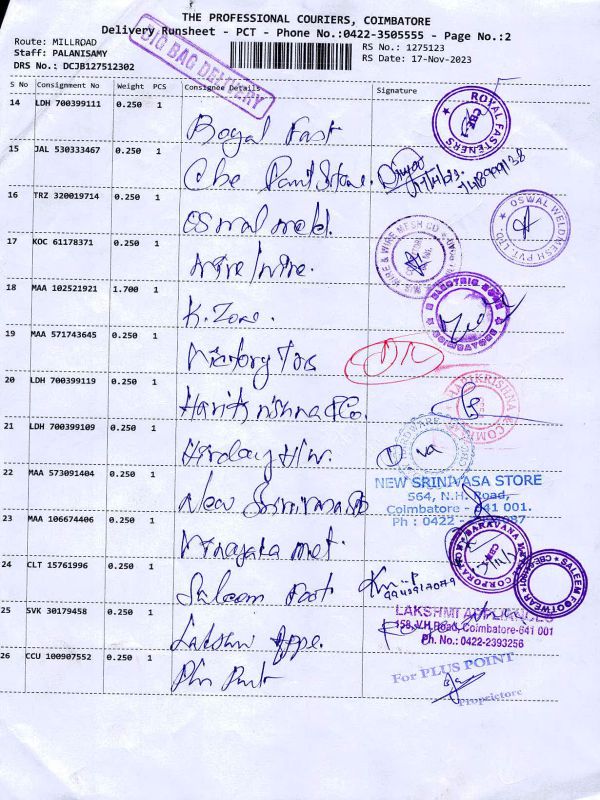 THE PROFESSIONAL COURIERS, COIMBATORE
Delivery Runsheet - PCT - Phone No.:0422-3505555 - Page No.:2
Route: MILLROAD
RS No.: 1275123
Staff: PALANISAMY
RS Date: 17-Nov-2023
DRS No.: DCJB127512302
BIG BAG DELIVERY
S No Consignment No Weight PCS Consignee Details Signature
14 LDH 700399111 0.250 1
Royal Fast
ROYAL FASTENERS CBE-1
15 JAL 530333467 0.250 1
Cbe Paint Store.
16 TRZ 320019714 0.250 1
Oswal
OSWAL WELDMESH PVT. LTD.
17 KOC 61178371 0.250 1
Wire/wire.
WIRE & WIRE MESH CO
18 MAA 102521921 1.700 1
K. Zone.
ELECTRIC ZONE COIMBATORE
19 MAA 571743645 0.250 1
Victory
20 LDH 700399119 0.250 1
Harikrishna & Co.
HARIKRISHNA & COMPANY
21 LDH 700399109 0.250 1
Hirday H/w.
22 MAA 573091404 0.250 1
New Srinivasa
NEW SRINIVASA STORE
564, N.H. Road,
Coimbatore - 641 001.
Ph : 0422
23 MAA 106674406 0.250 1
Vinayaka met.
SARAVANA CORPORATION
24 CLT 15761996 0.250 1
Saleem Foot
SALEEM FOOTWEAR
25 SVK 30179458 1
Lakshmi Appe.
LAKSHMI APPLIANCES
158, V.H.Road, Coimbatore-641 001
Ph. No.: 0422-2393256
26 CCU 100907552 0.250 1
For PLUS POINT
Proprietore